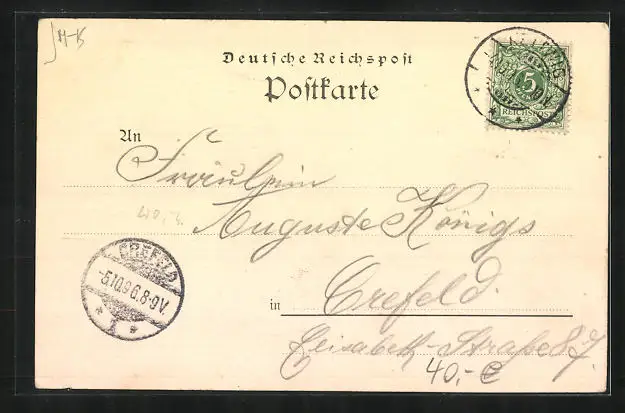 Deutsche Reichspost
Postkarte
5
REICHSPOST
An
Fräulein
Auguste Königs
CREFELD
-5.10.96.8-9V.
* 1 *
in Crefeld.
Elisabeth-Straße 87
40,-€